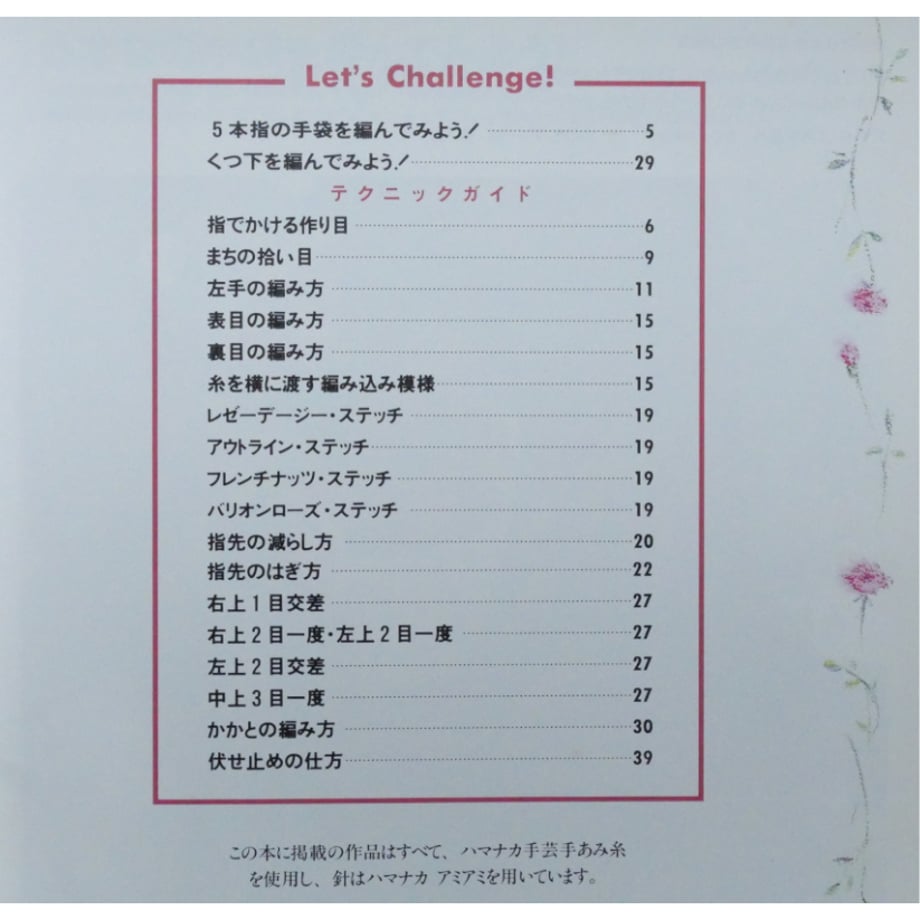 Let's Challenge!
5本指の手袋を編んでみよう! 5
くつ下を編んでみよう! 29
テクニックガイド
指でかける作り目 6
まちの拾い目 9
左手の編み方 11
表目の編み方 15
裏目の編み方 15
糸を横に渡す編み込み模様 15
レゼーデージー・ステッチ 19
アウトライン・ステッチ 19
フレンチナッツ・ステッチ 19
バリオンローズ・ステッチ 19
指先の減らし方 20
指先のはぎ方 22
右上1目交差 27
右上2目一度・左上2目一度 27
左上2目交差 27
中上3目一度 27
かかとの編み方 30
伏せ止めの仕方 39
この本に掲載の作品はすべて、ハマナカ手芸手あみ糸
を使用し、針はハマナカ アミアミを用いています。